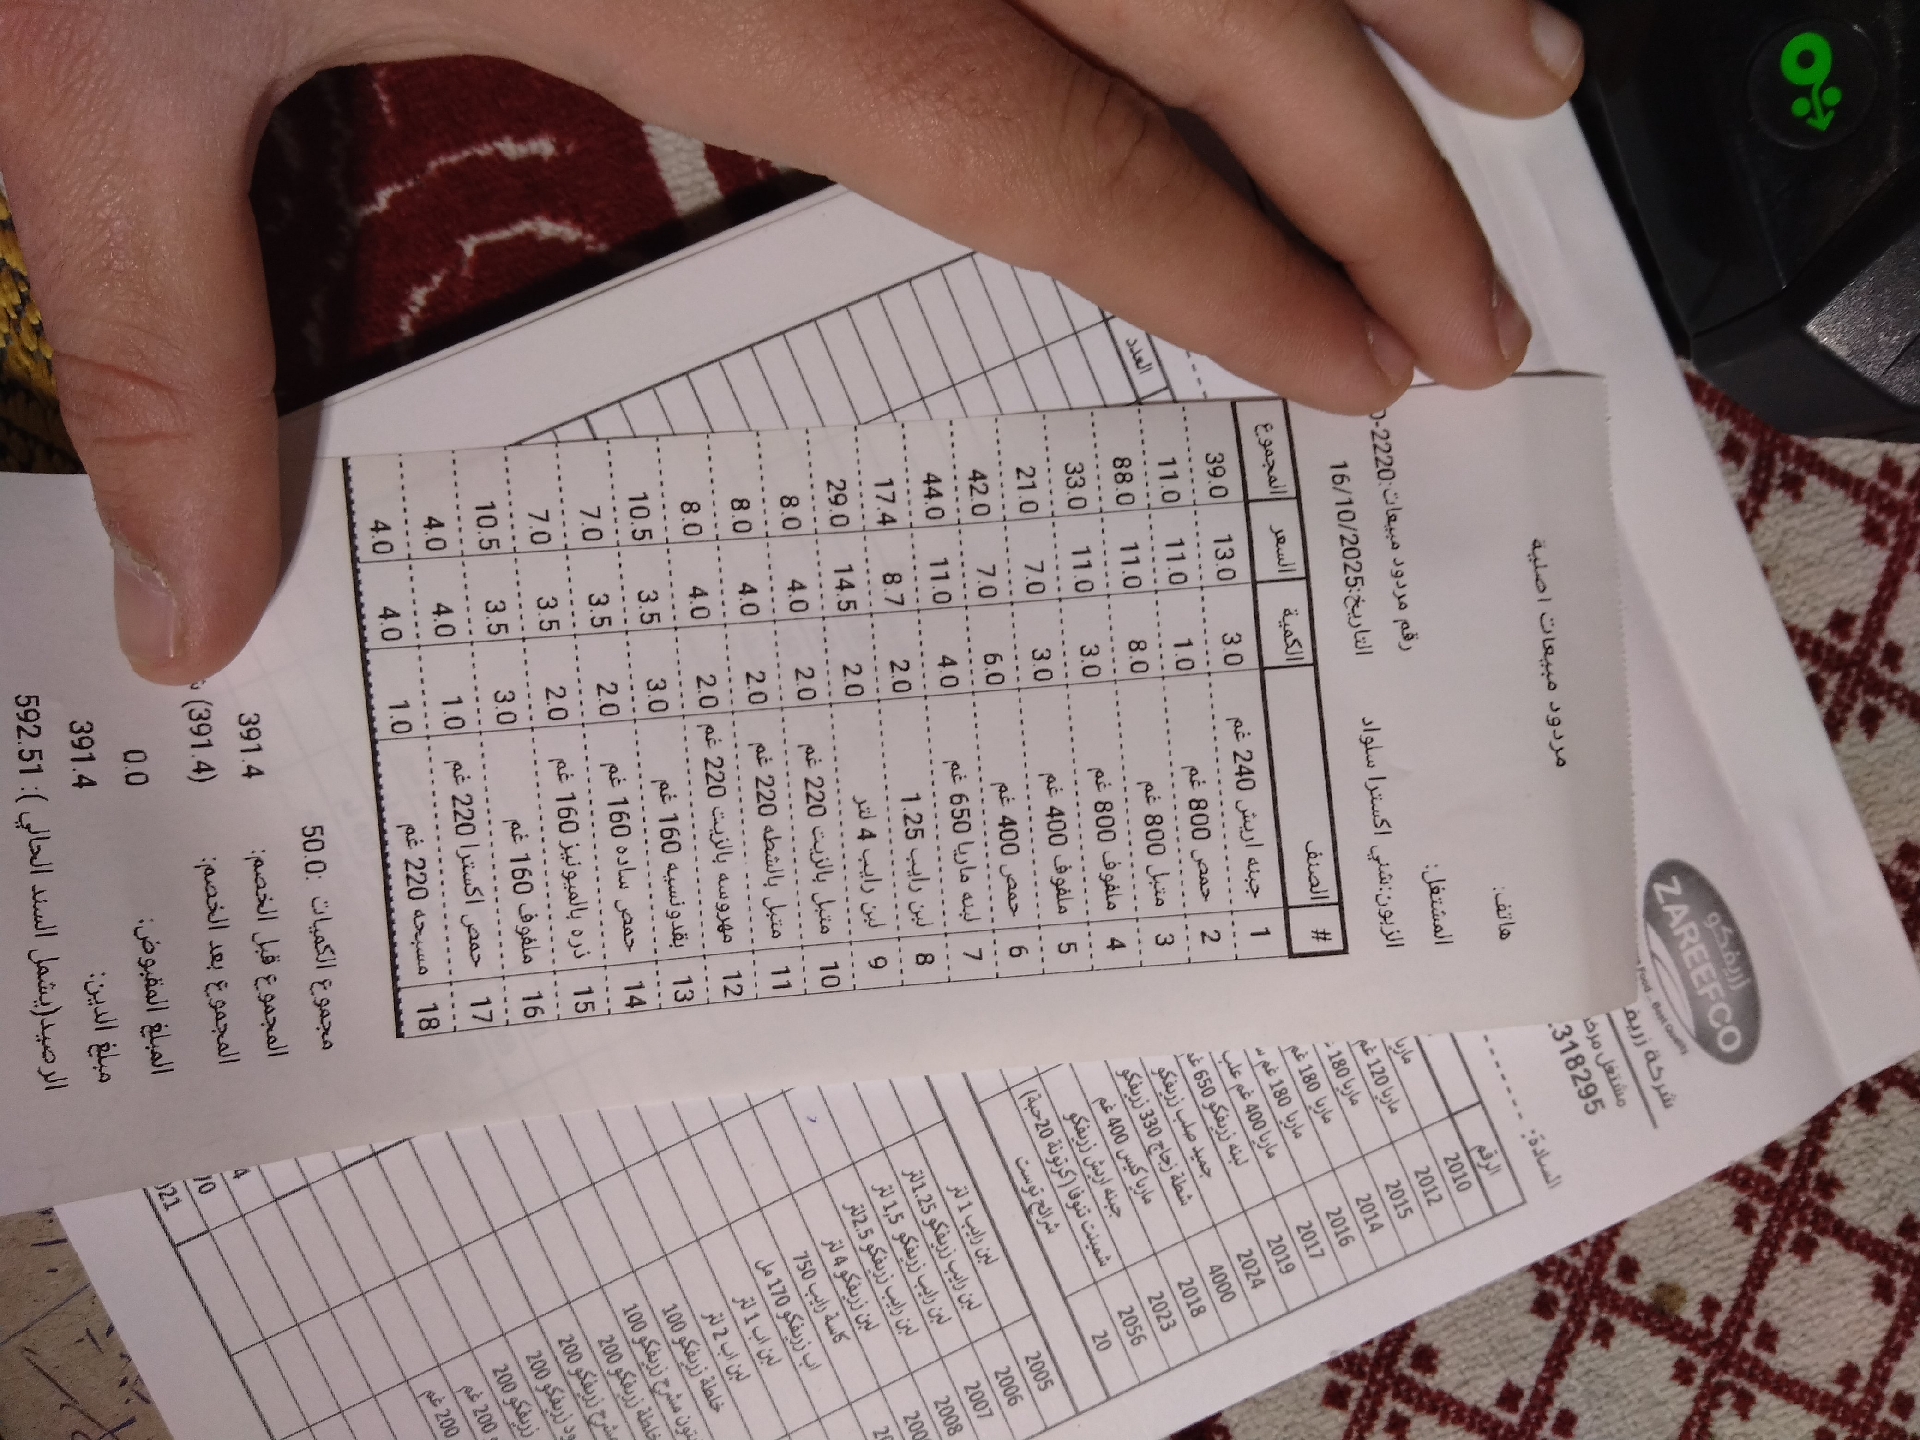 مردود مبيعات اصلية
هاتف:
رقم مردود مبيعات:2220-
المشتغل:
التاريخ:16/10/2025
الزبون:شني اكسترا سلواد
# الصنف الكمية السعر المجموع
1 جبنه اريش 240 غم 3.0 13.0 39.0
2 حمص 800 غم 1.0 11.0 11.0
3 متبل 800 غم 8.0 11.0 88.0
4 ملفوف 800 غم 3.0 11.0 33.0
5 ملفوف 400 غم 3.0 7.0 21.0
6 حمص 400 غم 6.0 7.0 42.0
7 لبنه ماريا 650 غم 4.0 11.0 44.0
8 لبن رايب 1.25 2.0 8.7 17.4
9 لبن رايب 4 لتر 2.0 14.5 29.0
10 متبل بالزيت 220 غم 2.0 4.0 8.0
11 متبل بالشطه 220 غم 2.0 4.0 8.0
12 مهروسه بالزيت 220 غم 2.0 4.0 8.0
13 بقدونسيه 160 غم 3.0 3.5 10.5
14 حمص ساده 160 غم 2.0 3.5 7.0
15 ذره بالميونيز 160 غم 2.0 3.5 7.0
16 ملفوف 160 غم 3.0 3.5 10.5
17 حمص اكسترا 220 غم 1.0 4.0 4.0
18 مسبحه 220 غم 1.0 4.0 4.0
مجموع الكميات :50.0
المجموع قبل الخصم: 391.4
المجموع بعد الخصم: (391.4)
المبلغ المقبوض: 0.0
مبلغ الدين: 391.4
الرصيد(يشمل السند الحالي ): 592.51
زريفكو
ZAREEFCO
Food .. Best Quality
شركة زريف
مشتغل مرخ
318295
السادة:
الرقم
العدد
2010
2012 ماريا 120 غم
2015 ماريا 180
2014 ماريا 180 غم
2016 ماريا 180 غم
2017 ماريا 400 غم علب
2019 لبنه زريفكو 650
2024 جميد صلب زريفكو
4000 شطة زجاج 330 زريفكو
2018 ماريا كيس 400 غم
2023 جبنه اريش زريفكو
2056 شمينت تنوفا (كرتونة 20حبة)
20 شرائح توست
2005 لبن رايب 1 لتر
2006 لبن رايب زريفكو 1.25لتر
2007 لبن رايب زريفكو 1,5 لتر
2008 لبن رايب زريفكو 2.5لتر
لبن زريفكو 4 لتر
كاسة رايب 750
اب زريفكو 170 مل
لبن اب 1 لتر
لبن اب 2 لتر
خلطة زريفكو 100
مشرح زريفكو 100
خلطة زريفكو 200
زريفكو 200
زريفكو 200
زريفكو 200
200 غم
200 غم